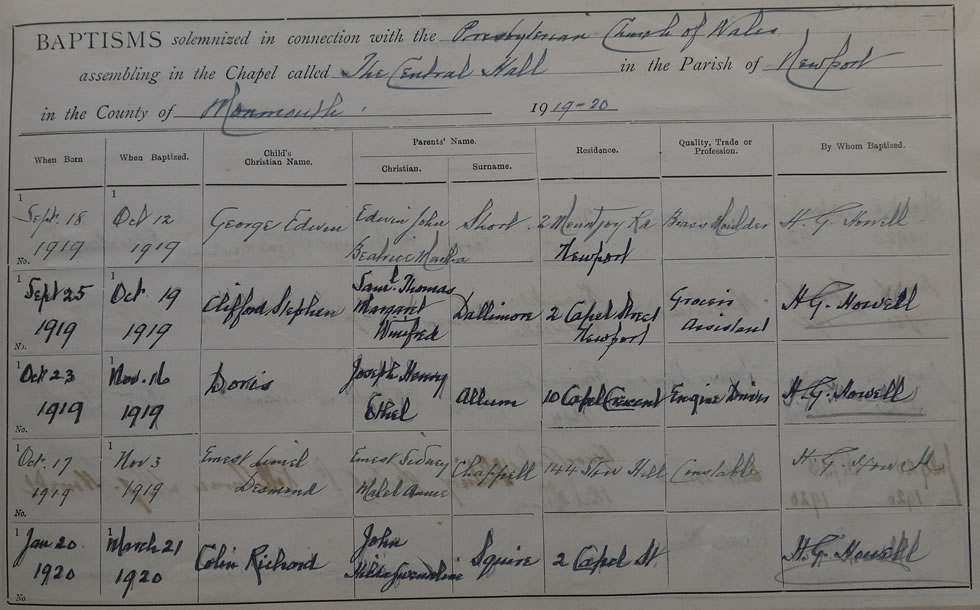 BAPTISMS solemnized in connection with the Presbyterian Church of Wales
assembling in the Chapel called The Central Hall in the Parish of Newport
in the County of Monmouth. 1919-20
When Born When Baptized. Child's Christian Name. Parents' Name. Christian. Surname. Residence. Quality, Trade or Profession. By Whom Baptized.
1 1
Sept. 18 Oct 12 George Edwin Edwin John Short 2 Mountjoy Rd Brass Moulder H. G. Howell
1919 1919 Beatrice Martha Newport
No.
1 1
Sept 25 Oct 19 Clifford Stephen Saml. Thomas Dallimore 2 Capel Street Grocers H. G. Howell
1919 1919 Margaret Winifred Newport Assistant
No.
1 1
Oct 23 Nov. 16 Doris Joseph Henry Allum 10 Capel Crescent Engine Driver H. G. Howell
1919 1919 Ethel
No.
1 1
Oct. 17 Nov 3 Ernest Ernest Sidney Chappell 144 Stow Hill Constable H. G. Howell
1919 1919 Desmond Mabel Annie
No.
1 1
Jan 20 March 21 Colin Richard John Squire 2 Capel St. H. G. Howell
1920 1920 Hilda Gwendoline
No